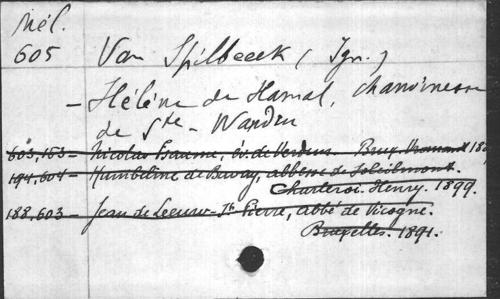 Mél.
605
Van Spilbeeck (Ign.)
- Hélène de Hamal, chanoinesse
de Ste-Wandru
603,153 - Nicolas Psaume, év. de Verdun. Brux. 18
194,604 - Humbeline de Baray, abbesse de Soleilmont.
Charleroi. Henry. 1899.
188,603 - Jean de Leeuw-St Pierre, abbé de Vicogne.
Bruxelles. 1891.